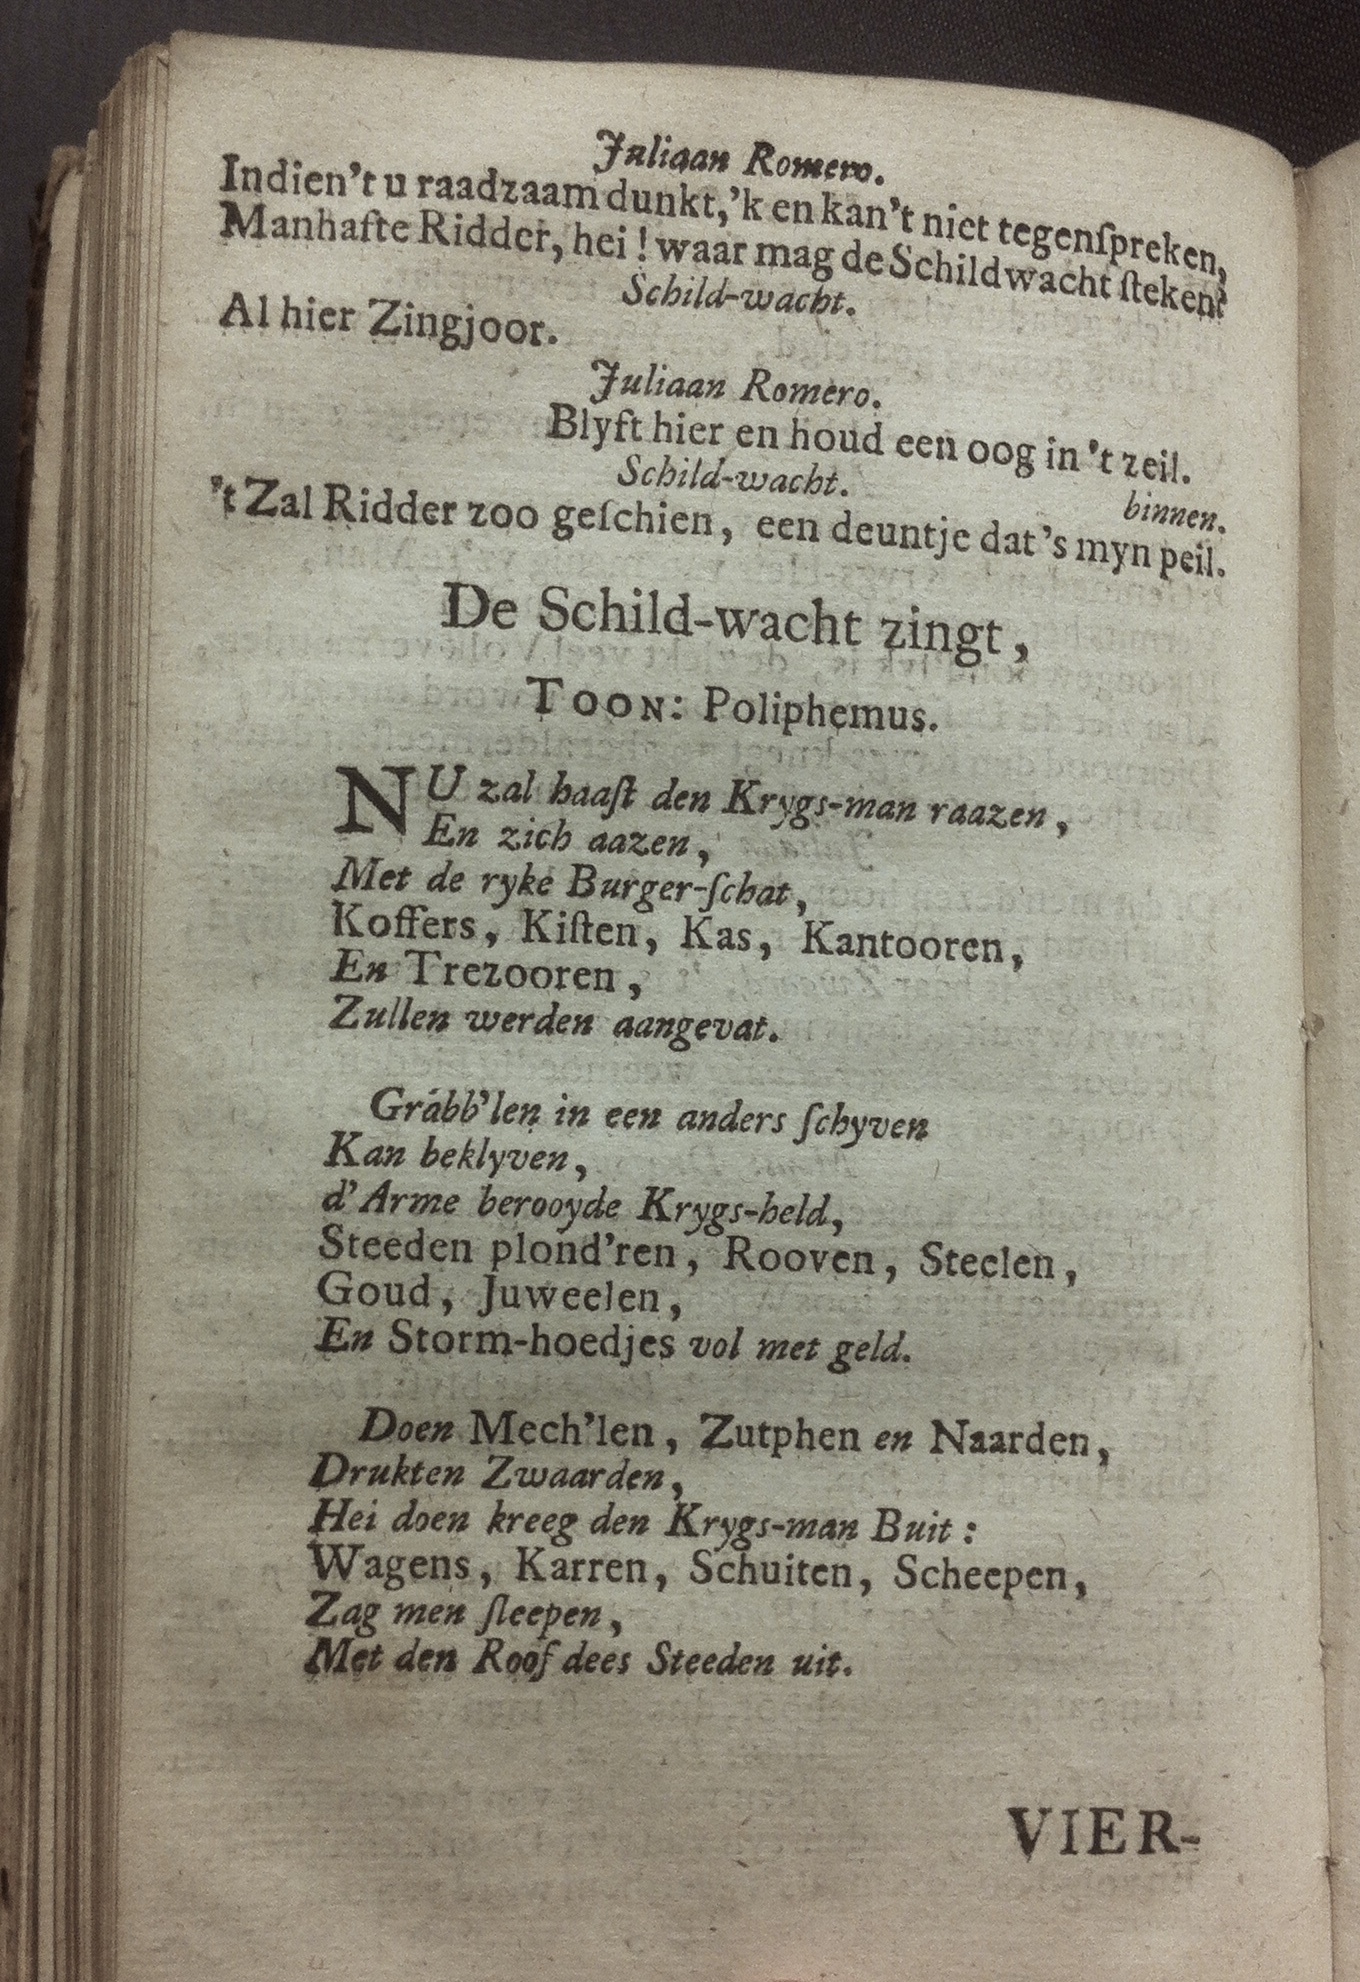 Juliaan Romero.
Indien't u raadzaam dunkt,'k en kan't niet tegenſpreken,
Manhafte Ridder, hei! waar mag de Schildwacht ſteken?
Schild-wacht.
Al hier Zingjoor.
Juliaan Romero.
Blyft hier en houd een oog in 't zeil.
binnen.
Schild-wacht.
't Zal Ridder zoo geſchien, een deuntje dat 's myn peil.
De Schild-wacht zingt,
TOON: Poliphemus.
NU zal haaſt den Krygs-man raazen,
En zich aazen,
Met de ryke Burger-ſchat,
Koffers, Kiſten, Kas, Kantooren,
En Trezooren,
Zullen werden aangevat.
Grabb'len in een anders ſchyven
Kan beklyven,
d'Arme berooyde Krygs-held,
Steeden plond'ren, Rooven, Steelen,
Goud, Juweelen,
En Storm-hoedjes vol met geld.
Doen Mech'len, Zutphen en Naarden,
Drukten Zwaarden,
Hei doen kreeg den Krygs-man Buit:
Wagens, Karren, Schuiten, Scheepen,
Zag men ſleepen,
Met den Roof dees Steeden uit.
VIER-